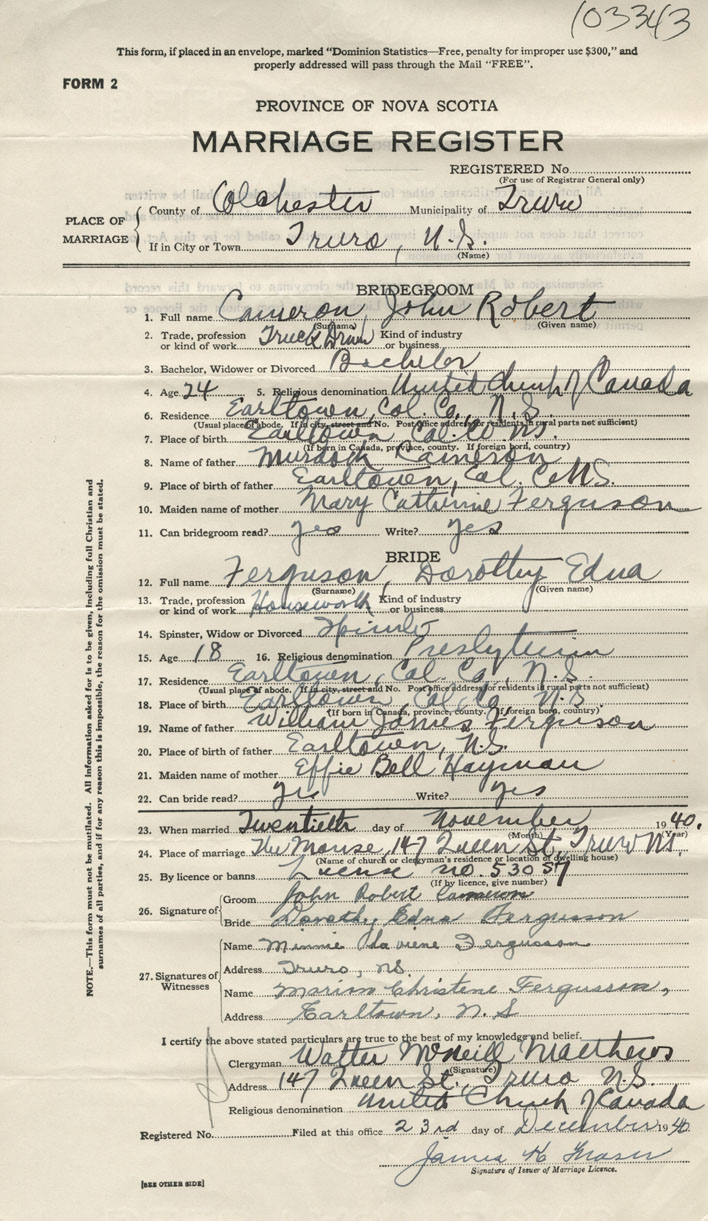 103343
This form, if placed in an envelope, marked "Dominion Statistics—Free, penalty for improper use $300," and
properly addressed will pass through the Mail "FREE".
FORM 2
PROVINCE OF NOVA SCOTIA
MARRIAGE REGISTER
REGISTERED No.
(For use of Registrar General only)
PLACE OF MARRIAGE
County of Colchester Municipality of Truro
If in City or Town Truro, N.S.
(Name)
BRIDEGROOM
1. Full name Cameron, John Robert
(Surname) (Given name)
2. Trade, profession or kind of work Truck Driver Kind of industry or business
3. Bachelor, Widower or Divorced Bachelor
4. Age 24 5. Religious denomination United Church of Canada
6. Residence Earltown, Col. Co., N.S.
(Usual place of abode. If in city, street and No. Post office address for residents in rural parts not sufficient)
7. Place of birth Earltown, Col. Co. N.S.
(If born in Canada, province, county. If foreign born, country)
8. Name of father Murdoch Cameron
9. Place of birth of father Earltown, Col. Co. N.S.
10. Maiden name of mother Mary Catherine Ferguson
11. Can bridegroom read? yes Write? yes
BRIDE
12. Full name Ferguson, Dorothy Edna
(Surname) (Given name)
13. Trade, profession or kind of work Housework Kind of industry or business
14. Spinster, Widow or Divorced
15. Age 18 16. Religious denomination Presbyterian
17. Residence Earltown, Col. Co., N.S.
(Usual place of abode. If in city, street and No. Post office address for residents in rural parts not sufficient)
18. Place of birth Earltown, Col. Co. N.S.
(If born in Canada, province, county. If foreign born, country)
19. Name of father William James Ferguson
20. Place of birth of father Earltown, N.S.
21. Maiden name of mother Effie Bell Hayman
22. Can bride read? yes Write? yes
23. When married Twentieth day of November 1940.
(Month) (Year)
24. Place of marriage The Manse, 147 Queen St, Truro N.S.
(Name of church or clergyman's residence or location of dwelling house)
25. By licence or banns License no. 53057
(If by licence, give number)
26. Signature of
Groom John Robert Cameron
Bride Dorothy Edna Fergusson
27. Signatures of Witnesses
Name Minnie Fergusson
Address Truro, N.S.
Name Marion Christene Fergusson,
Address Earltown, N.S
I certify the above stated particulars are true to the best of my knowledge and belief.
Clergyman Walter McNeill Matthews
(Signature)
Address 147 Queen St., Truro N.S.
Religious denomination United Church of Canada
Registered No. Filed at this office 23rd day of December 1940
James K Fraser
Signature of Issuer of Marriage Licence.
[SEE OTHER SIDE]
NOTE.—This form must not be mutilated. All information asked for is to be given, including full Christian and
surnames of all parties, and if for any reason this is impossible, the reason for the omission must be stated.